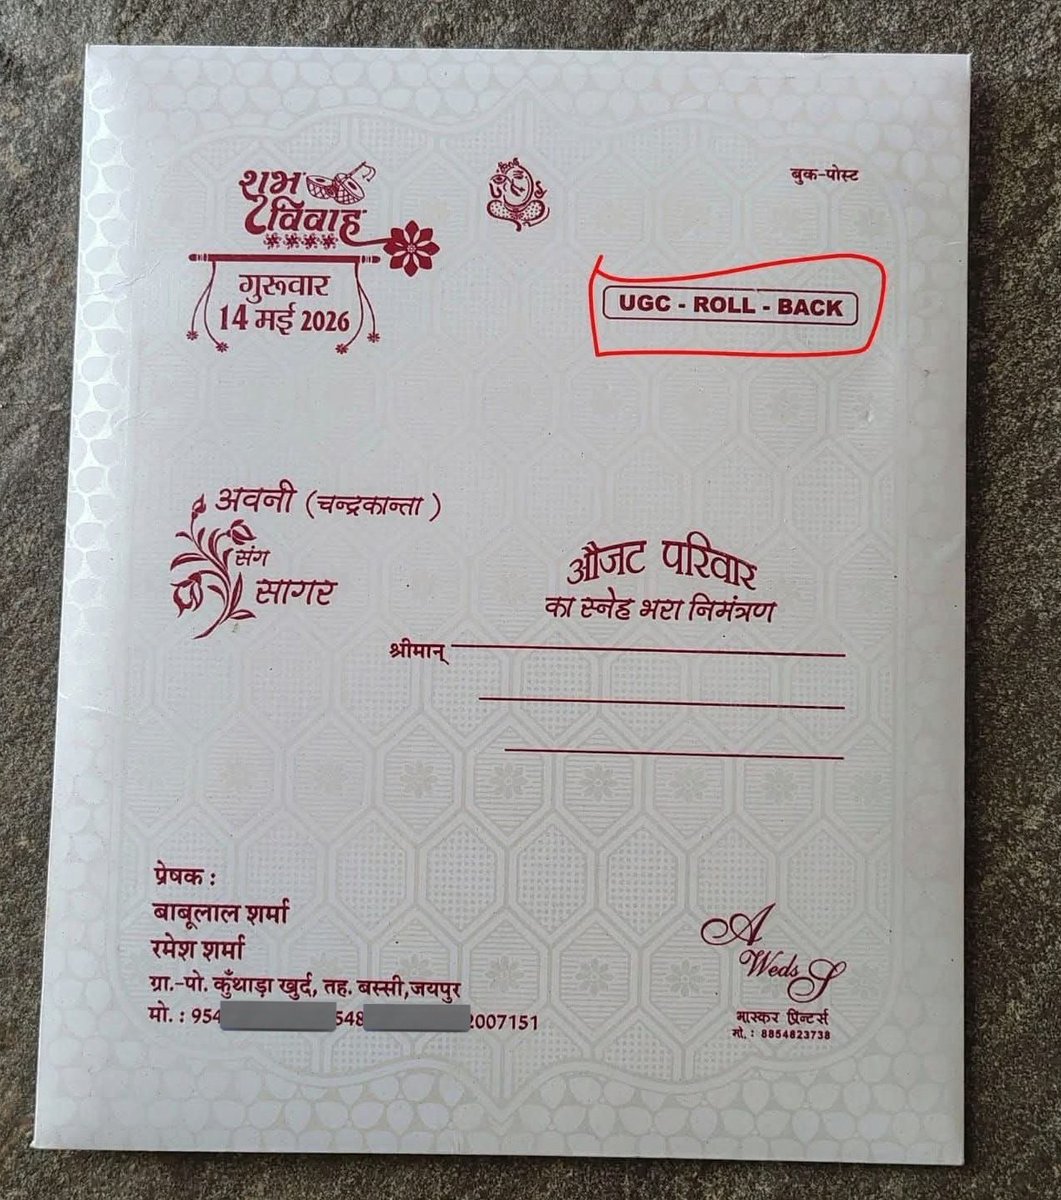 शुभ
विवाह
गुरूवार
14 मई 2026
बुक-पोस्ट
UGC - ROLL - BACK
अवनी (चन्द्रकान्ता )
संग
सागर
औजट परिवार
का स्नेह भरा निमंत्रण
श्रीमान्
प्रेषक :
बाबूलाल शर्मा
रमेश शर्मा
ग्रा.-पो. कुँथाड़ा खुर्द, तह. बस्सी,जयपुर
मो. : 954 548 2007151
A
Weds
S
भास्कर प्रिन्टर्स
मो. : 8854823738